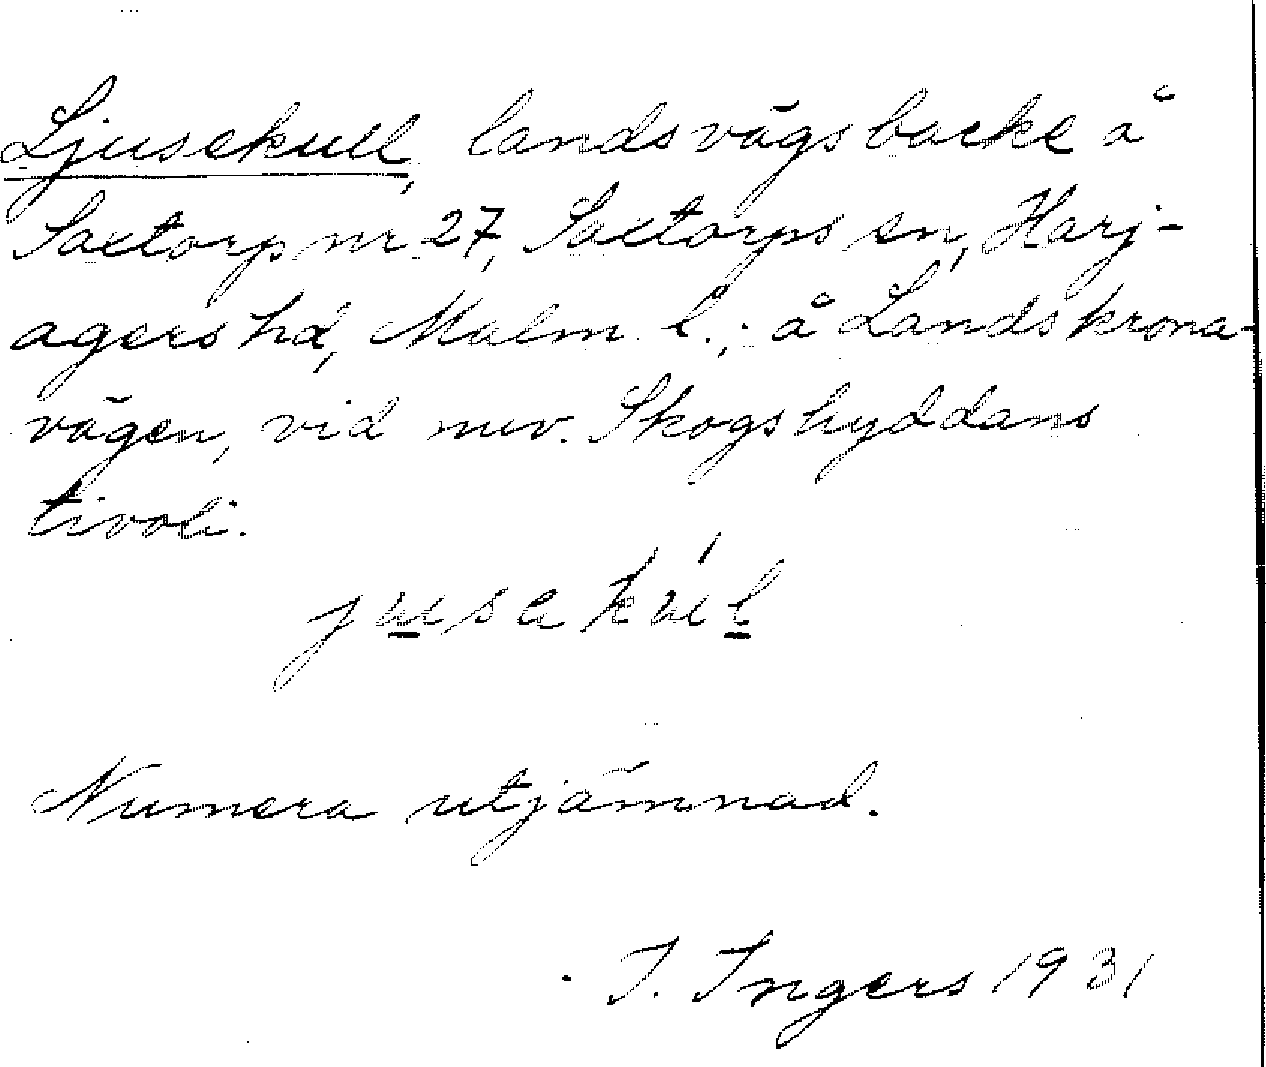 Ljusekull, landsvägsbacke å
Saxtorp nr 27, Saxtorps sn, Harj-
agers hd, Malm. l.; å Landskrona-
vägen, vid nuv. Skogshyddans
tivoli.
jusakúl
Numera utjämnad.
I. Ingers 1931